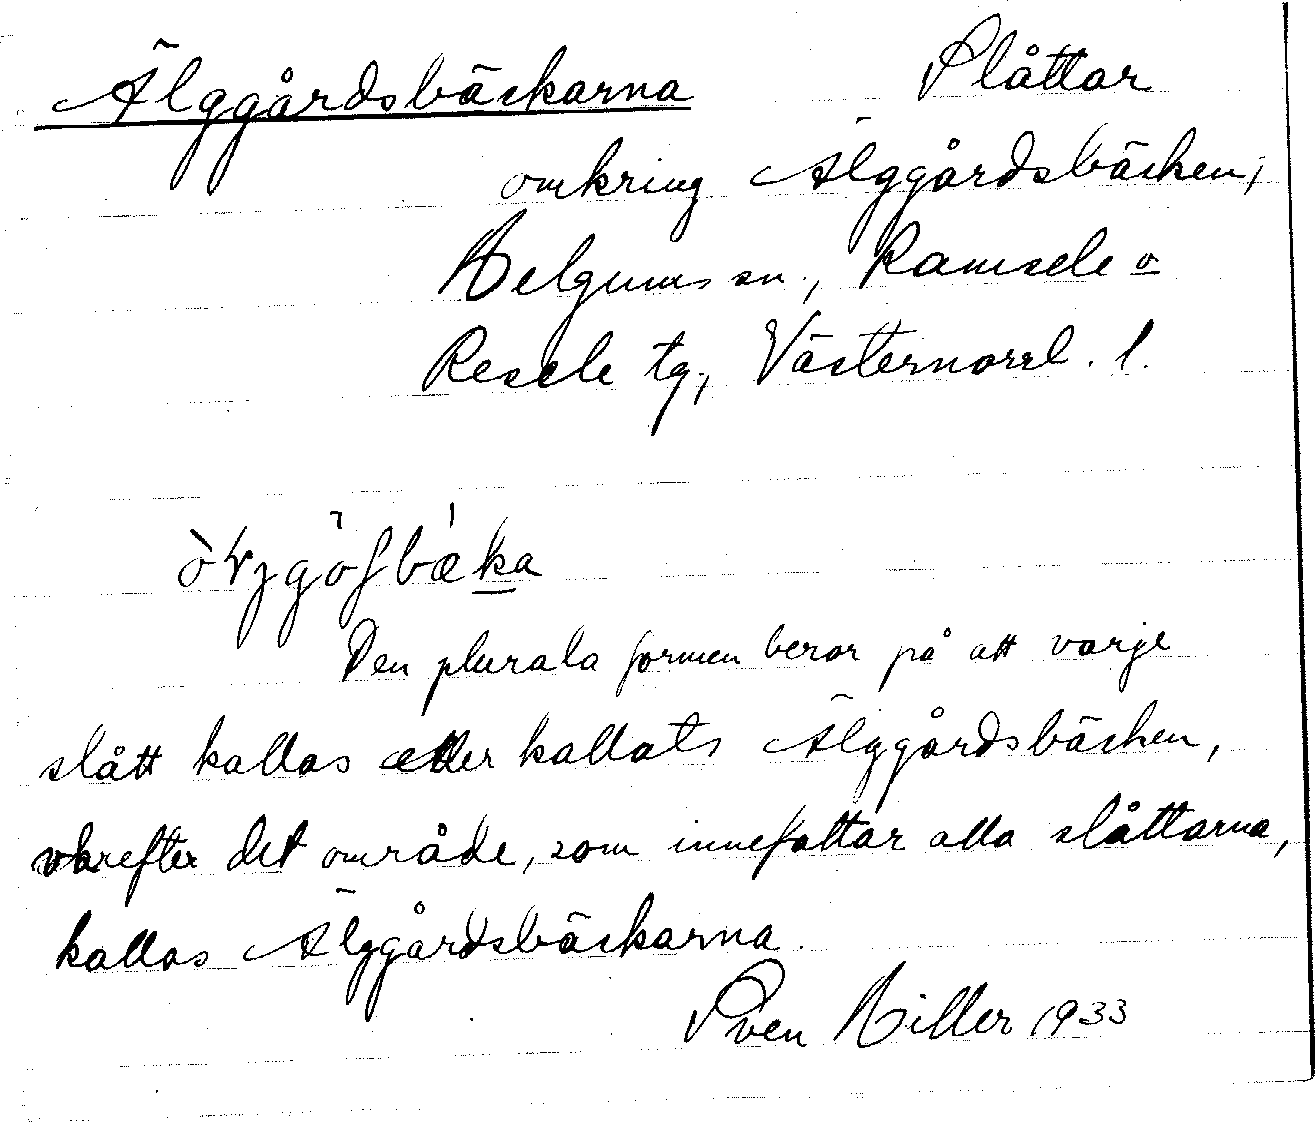 Älggårdsbäckarna Slåttar
omkring Älggårdsbäcken,
Helgums sn., Ramsele o
Resele tg, Västernorrl. l.
Den plurala formen beror på att varje
slått kallas eller kallats Älggårdsbäcken,
varefter det område, som innefattar alla slåttarna,
kallas Älggårdsbäckarna.
Sven Hiller 1933